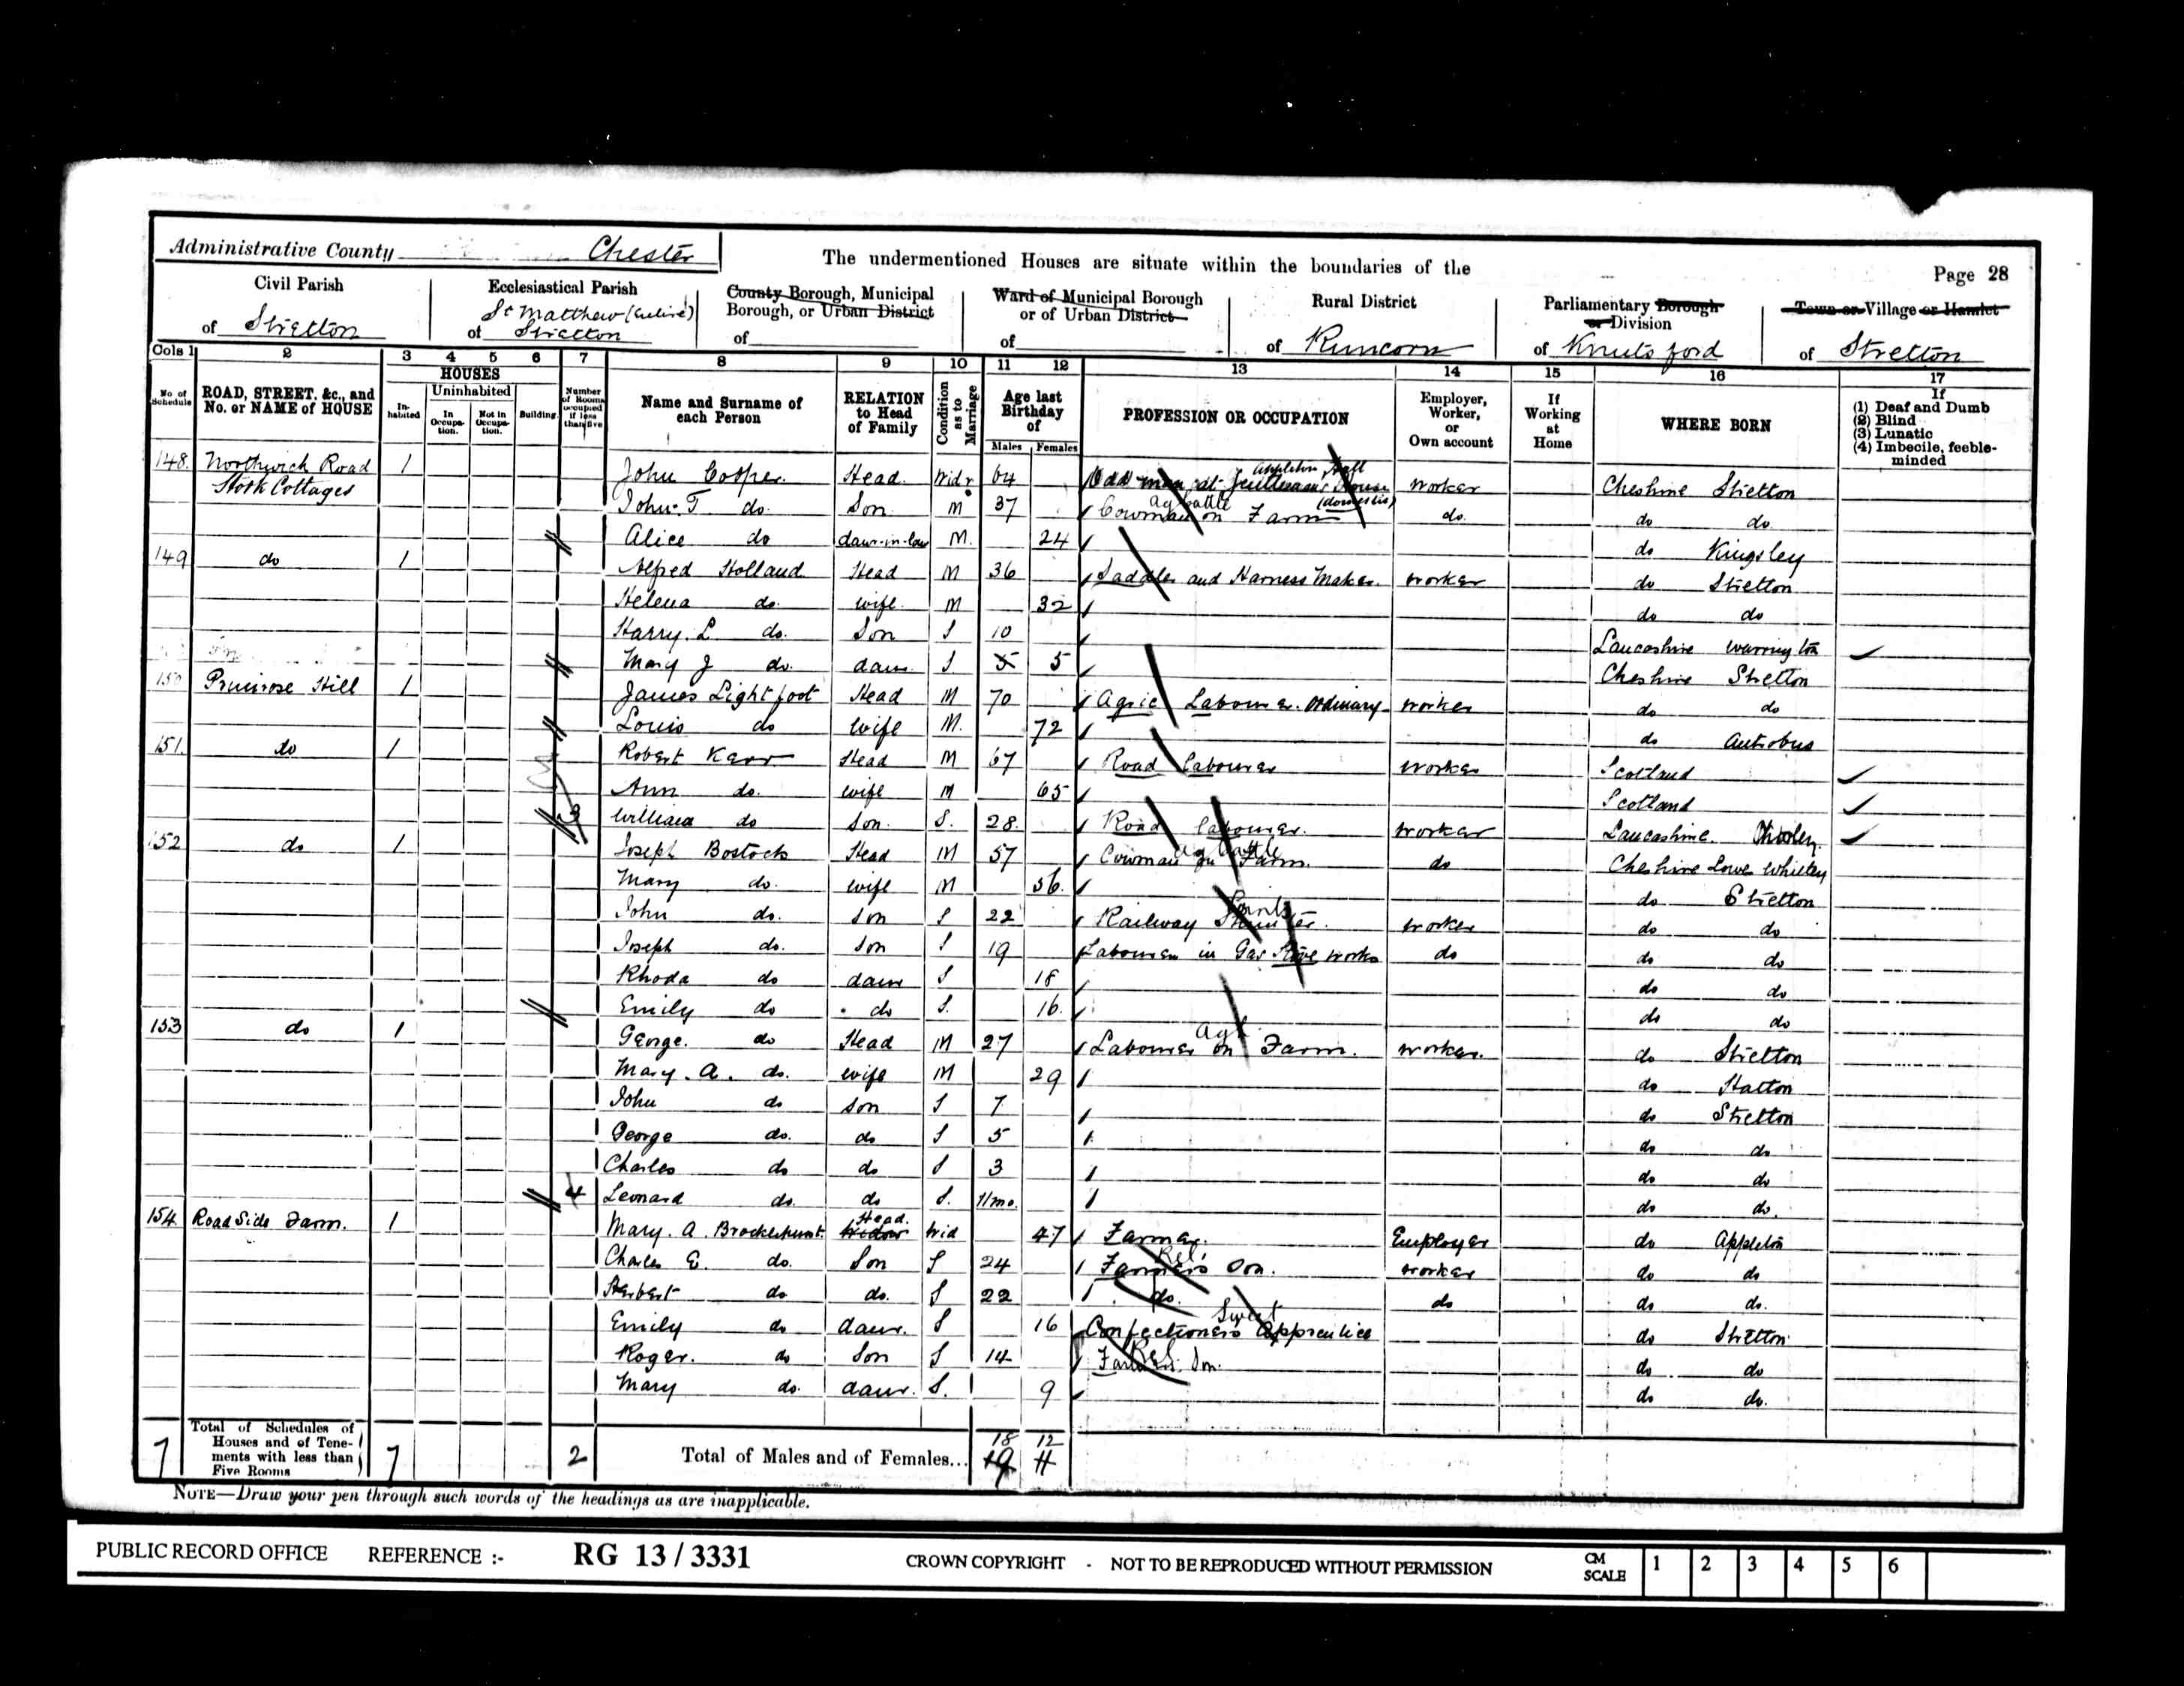 Administrative County Chester
The undermentioned Houses are situate within the boundaries of the
Page 28
Civil Parish
of Stretton
Ecclesiastical Parish
St Matthew (Entire)
of Stretton
County Borough, Municipal
Borough, or Urban District
of
Ward of Municipal Borough
or of Urban District
of
Rural District
of Runcorn
Parliamentary Borough
or Division
of Knutsford
Town or Village or Hamlet
of Stretton
Cols 1 2 3 4 5 6 7 8 9 10 11 12 13 14 15 16 17
No of Schedule
ROAD, STREET, &c., and No. or NAME of HOUSE
HOUSES
In-habited
Uninhabited
In Occupa-tion.
Not in Occupa-tion.
Building
Number of Rooms occupied if less than five
Name and Surname of each Person
RELATION to Head of Family
Condition as to Marriage
Age last Birthday of
Males Females
PROFESSION OR OCCUPATION
Employer, Worker, or Own account
If Working at Home
WHERE BORN
If
(1) Deaf and Dumb
(2) Blind
(3) Lunatic
(4) Imbecile, feeble-minded
148. Northwich Road 1 John Cooper. Head. Widr 64 Odd man at Gentleman's House Appleton Hall (domestic) worker Cheshire Stretton
Stork Cottages John. T. do. Son M 37 Cowman on Farm Ag Cattle do. do do
Alice do daur-in-law M. 24 do Kingsley
149 do 1 Alfred Holland Head M 36 Saddler and Harness Maker. worker do Stretton
Helena do. wife M 32 do do
Harry. L do. Son S 10 Lancashire Warrington
Mary J do. daur S 5 5 Cheshire Stretton
150 Primrose Hill 1 James Lightfoot Head M 70 Agric Labourer. ordinary worker do do
Louis do wife M. 72 do Antrobus
151. do 1 Robert Kerr Head M 67 Road Labourer worker Scotland
Ann do. wife M 65 Scotland
3 William do son. S. 28. Road Labourer. worker Lancashire. Chorley
152 do 1 Joseph Bostock Head M 57 Cowman on Farm. Ag Cattle do Cheshire Lower Whitley
Mary do. wife M 56. do Stretton
John do. son S 22 Railway Shunter. Points worker do do
Joseph do. son S 19 Labourer in Gas Stove works do do do
Rhoda do daur S 18 do do
Emily do do S. 16. do do
153 do 1 George. do Head M 27 Labourer on Farm. Agl worker. do Stretton
Mary. A. do. wife M 29 do Hatton
John do son S 7 do Stretton
George do. do S 5 do do
Charles do do S 3 do do
4 Leonard do. do S. 11mo. do do.
154 Road Side Farm. 1 Mary. A. Brocklehurst. Head. Widow Wid 47 Farmer. Employer do Appleton
Charles E. do. Son S 24 Farmers Son. Rel. worker do do
Herbert do do. S 22 do. do do do.
Emily do daur. S 16 Confectioners Apprentice Sweet do Stretton
Roger. do Son S 14 Farmers Son. Rel do do
Mary do. daur. S. 9 do do.
7 Total of Schedules of Houses and of Tene-ments with less than Five Rooms 7 2 Total of Males and of Females... 18 12
19 11
NOTE—Draw your pen through such words of the headings as are inapplicable.
PUBLIC RECORD OFFICE REFERENCE :- RG 13 / 3331 CROWN COPYRIGHT - NOT TO BE REPRODUCED WITHOUT PERMISSION CM SCALE 1 2 3 4 5 6